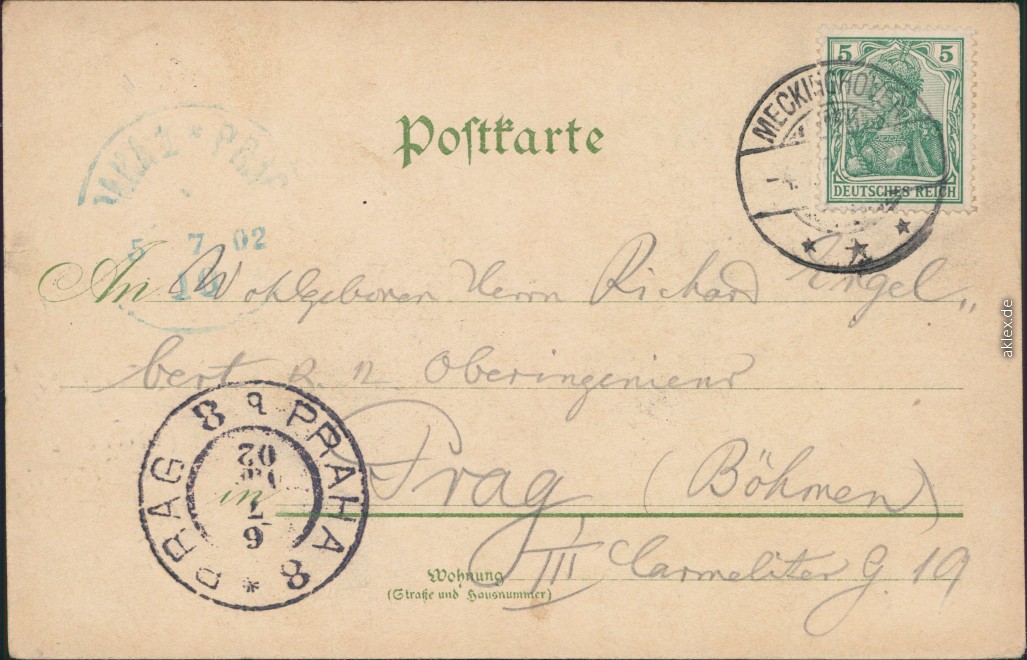 5 5
DEUTSCHES REICH
MECKINGHOVEN
Postkarte
PRAG
5 7 02
An Wohlgeboren Herrn Richard Engel„
bert k. n. Oberingenieur
PRAG 8 PRAHA 8
6
7
02
in Prag (Böhmen)
III Carmeliter G 19
Wohnung
(Straße und Hausnummer)
aklex.de